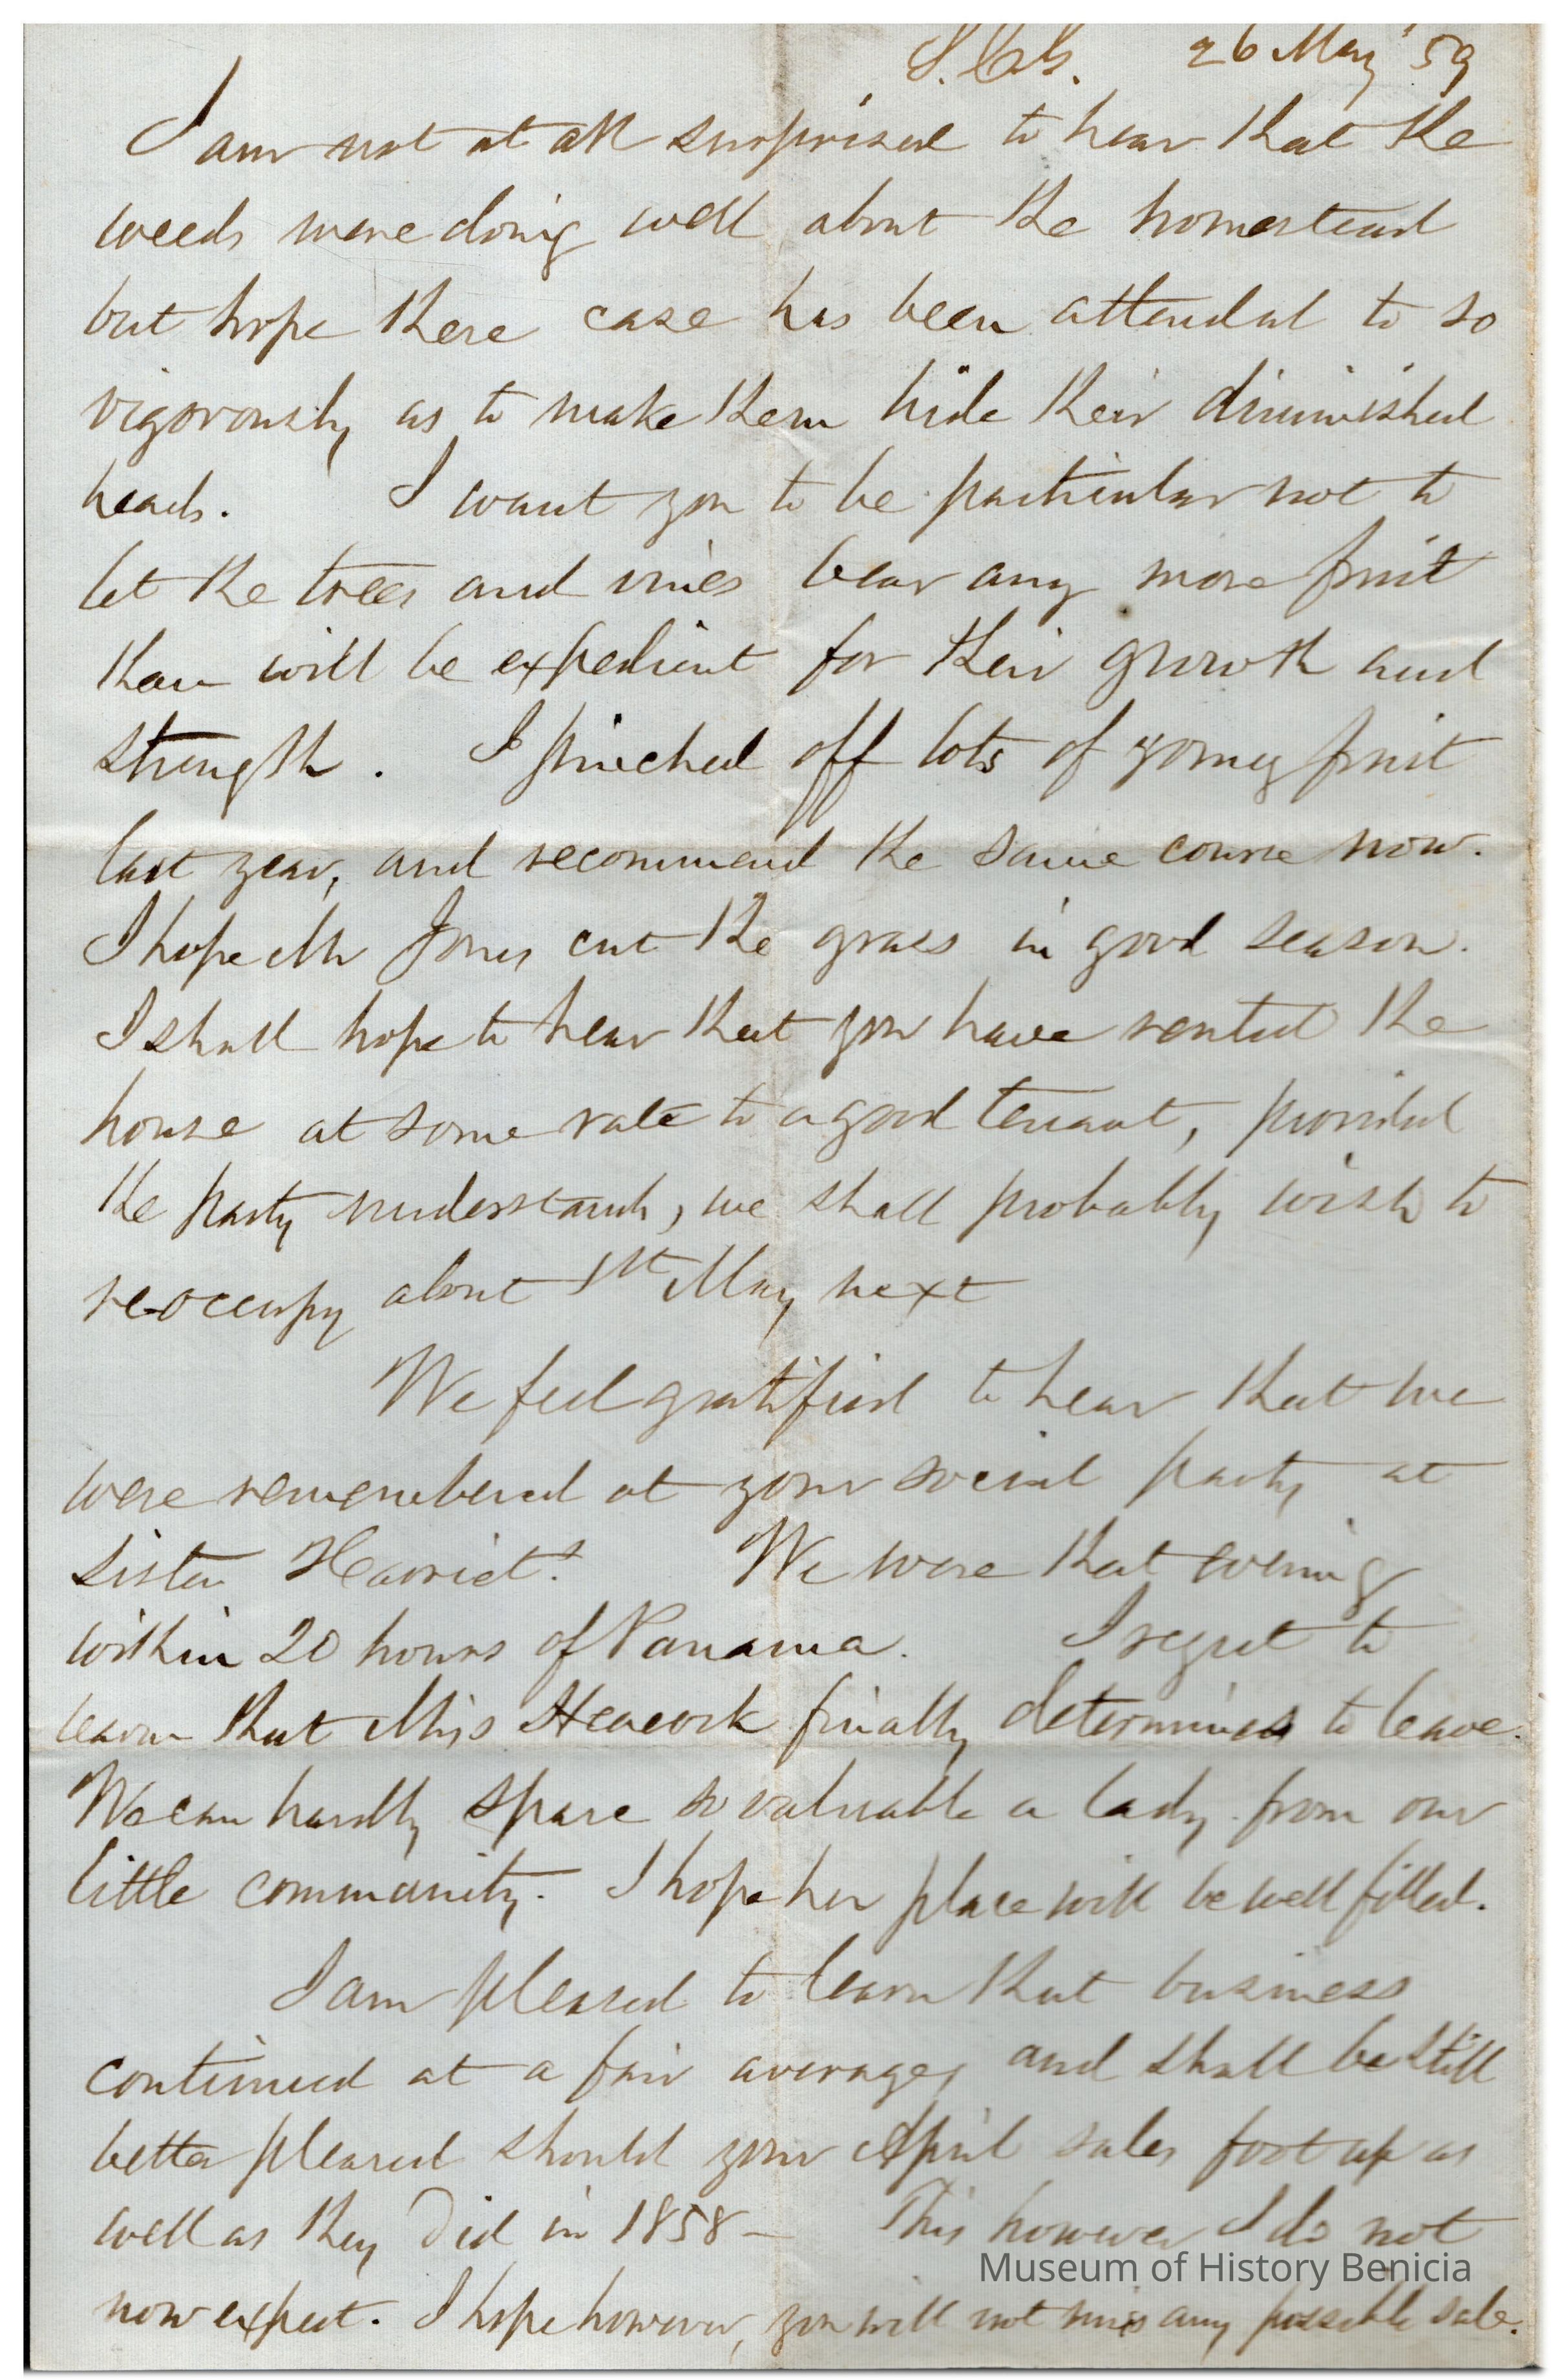 26 May '59
I am not at all surprised to hear that the
weeds were doing well about the homestead
but hope there case has been attended to so
vigorously as to make them hide their diminished
heads. I want you to be particular not to
let the trees and vines bear any more fruit
than will be expedient for their growth and
strength. I pinched off lots of young fruit
last year, and recommend the same course now.
I hope Mr Jones cut the grass in good season.
I shall hope to hear that you have rented the
house at some rate to a good tenant, provided
the party understands, we shall probably wish to
re-occupy about 1st May next
We feel gratified to hear that we
were remembered at your social party at
Sister Harriet's. We were that evening
within 20 hours of Panama. I regret to
learn that Miss Heacock finally determines to leave.
We can hardly spare so valuable a lady from our
little community. I hope her place will be well filled.
I am pleased to learn that business
continued at a fair average, and shall be still
better pleased should your April sales foot up as
well as they did in 1858 — This however I do not
now expect. I hope however, you will not miss any possible sale.
Museum of History Benicia